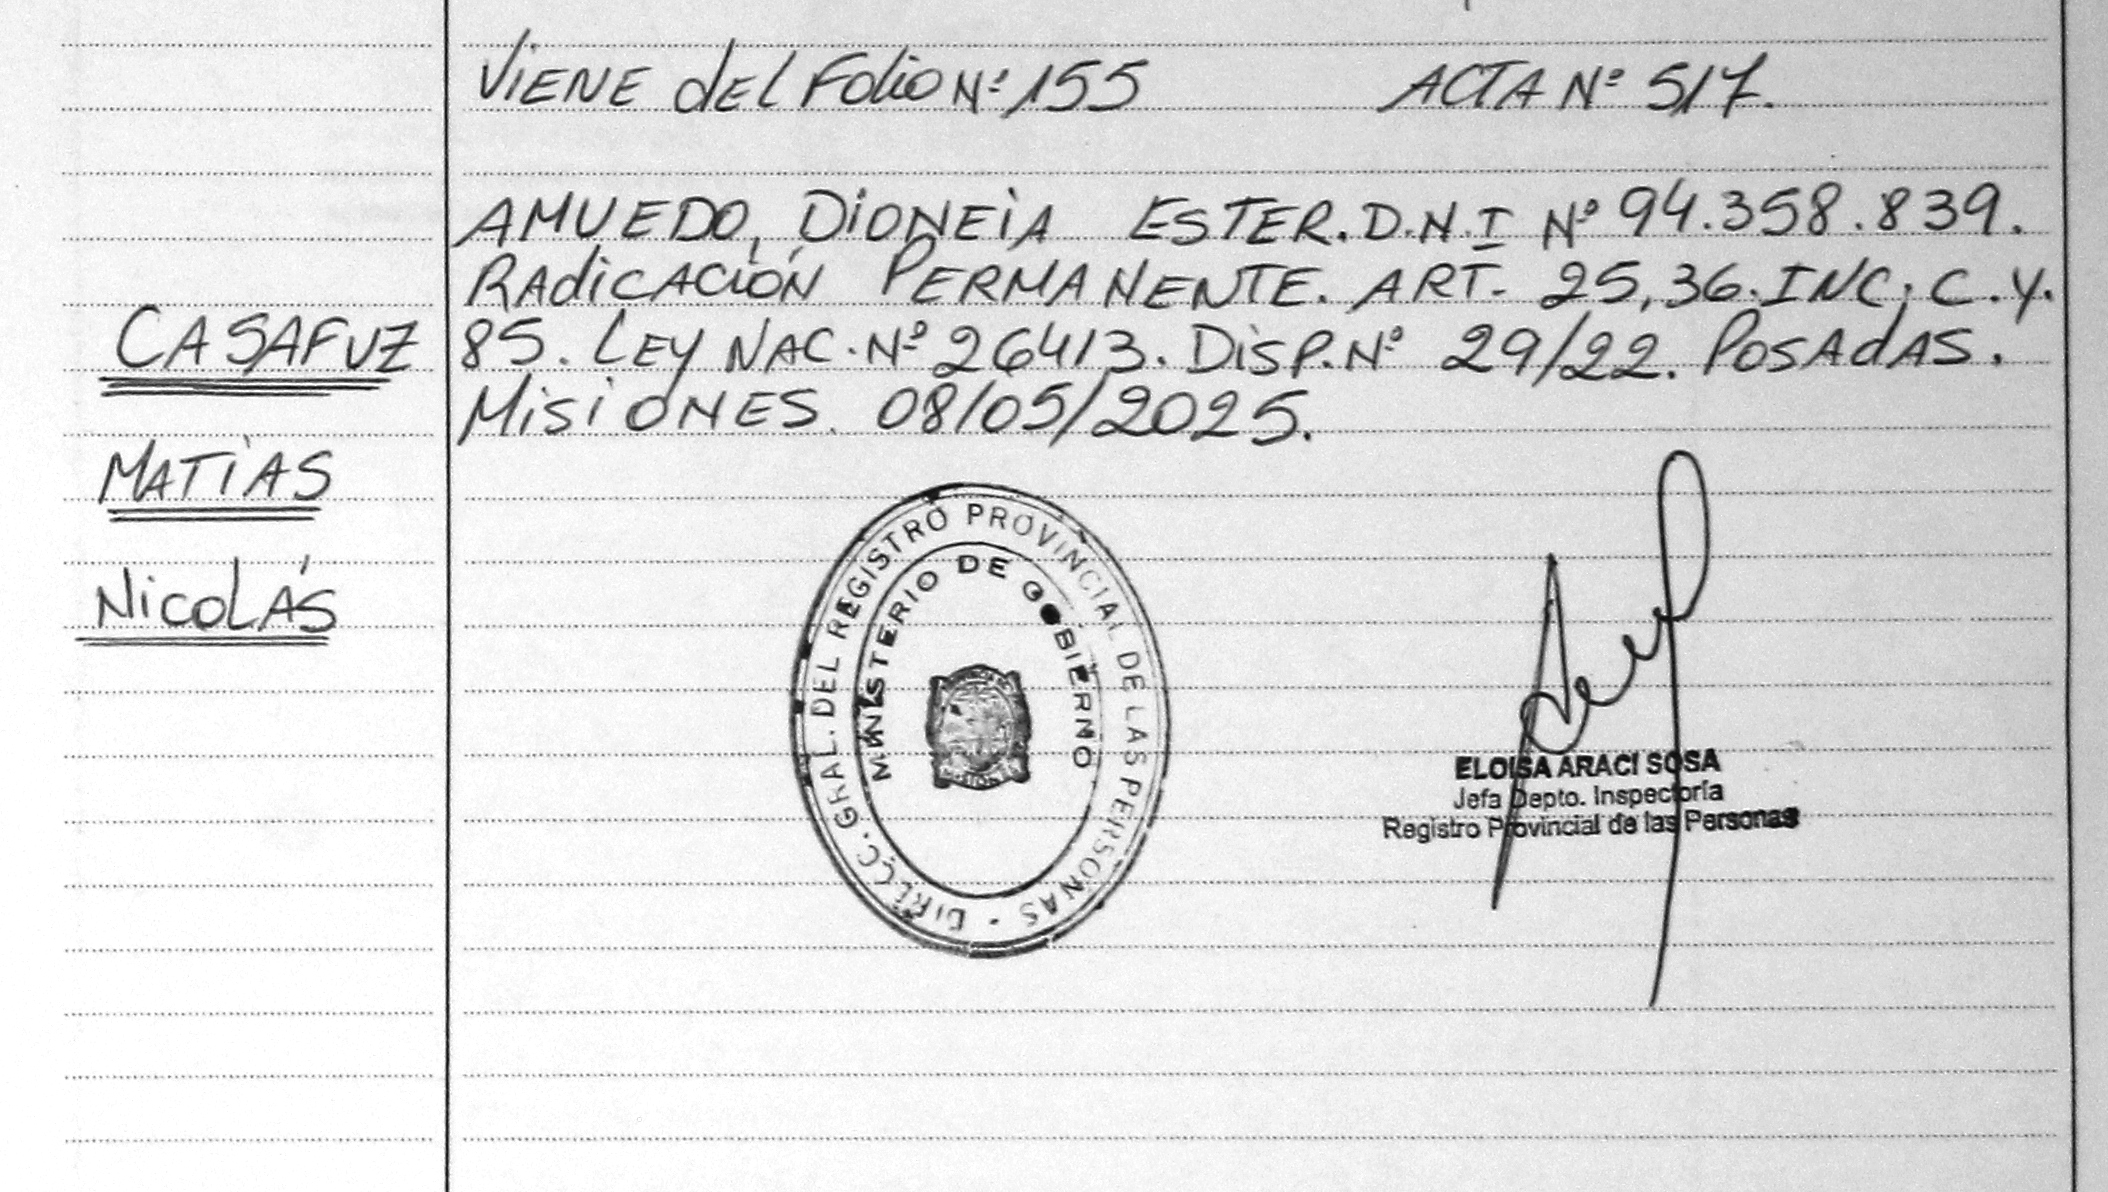 VIENE del Folio Nº 155 ACTA Nº 517.
AMUEDO, DIONEIA ESTER. D.N.I Nº 94.358.839.
RADICACIÓN PERMANENTE. ART. 25, 36. INC. C. Y.
85. LEY NAC. Nº 26413. DISP. Nº 29/22. POSADAS.
MISIONES. 08/05/2025.
CASAFUZ
MATÍAS
NICOLÁS
DIRECC. GRAL. DEL REGISTRO PROVINCIAL DE LAS PERSONAS -
MINISTERIO DE GOBIERNO
MISIONES
ELOISA ARACI SOSA
Jefa Depto. Inspectoría
Registro Provincial de las Personas